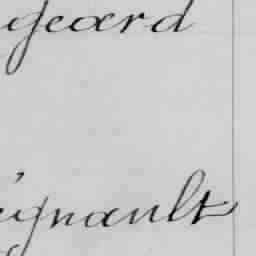 geard
ignault